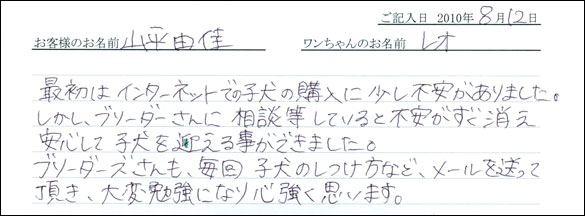 ご記入日 2010年8月12日
お客様のお名前 山平由佳 ワンちゃんのお名前 レオ
最初はインターネットでの子犬の購入に少し不安がありました。
しかし、ブリーダーさんに相談等していると不安がすぐ消え
安心して子犬を迎える事ができました。
ブリーダーズさんも、毎回子犬のしつけ方など、メールを送って
頂き、大変勉強になり心強く思います。